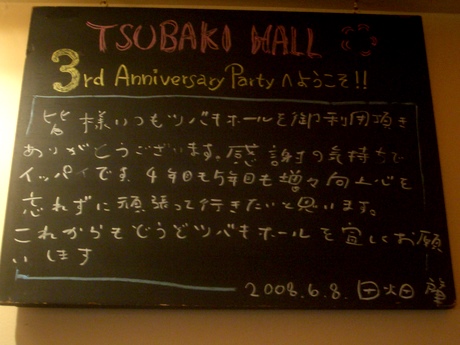 TSUBAKI HALL
3rd Anniversary Party へようこそ!!
皆様いつもツバキホールを御利用頂き
ありがとうございます。感謝の気持ちで
イッパイです。4年目も5年目も増々向上心を
忘れずに頑張って行きたいと思います。
これからもどうぞツバキホールを宜しくお願
いします
2008.6.8.